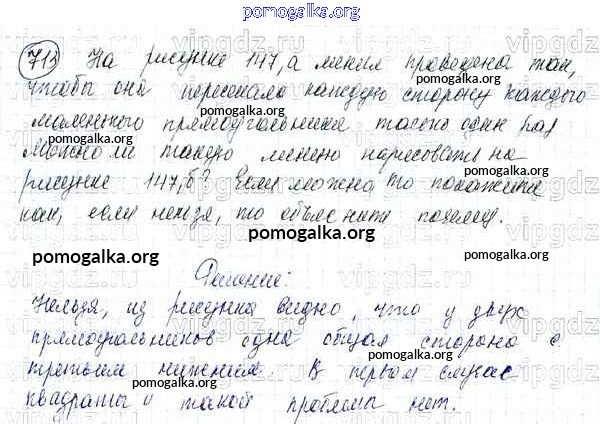 pomogalka.org
713 На рисунке 147, а линия проведена так,
pomogalka.org
чтобы она пересекала каждую сторону каждого
pomogalka.org
маленького прямоугольника только один раз
Можно ли такую линию нарисовать на
pomogalka.org pomogalka.org
рисунке 147, б? Если можно, то покажите
как, если нельзя, то объяснить почему.
pomogalka.org pomogalka.org
Решение:
Нельзя, из рисунка видно, что у двух
pomogalka.org
прямоугольников одна общая сторона с
pomogalka.org
третьим нижним. В первом случае
pomogalka.org
квадраты и такой проблемы нет.
pomogalka.org